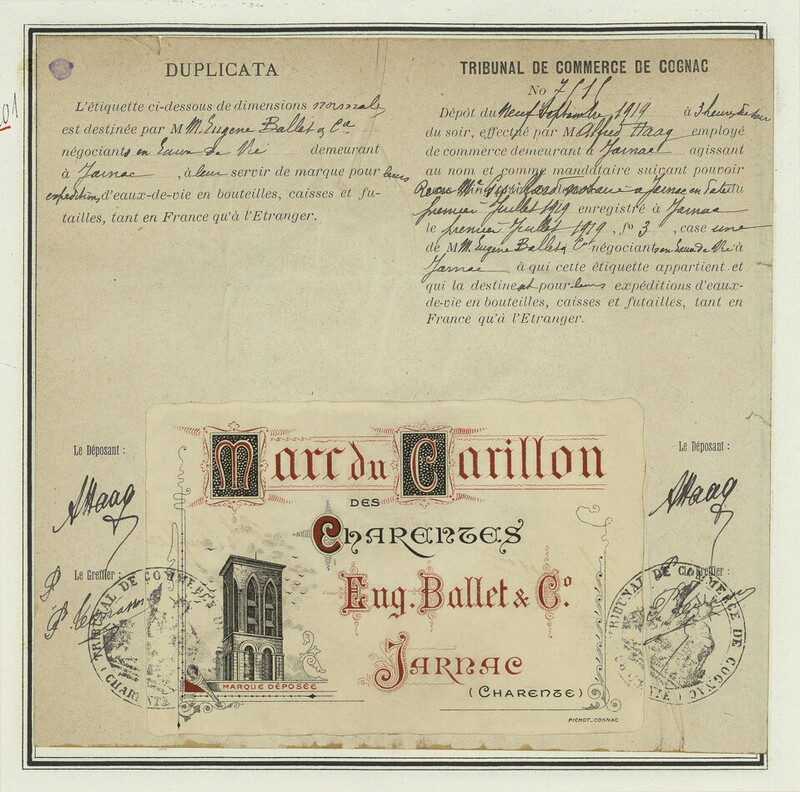 DUPLICATA
L'étiquette ci-dessous de dimensions normale
est destinée par MM. Eugene Ballet & Cie
négociants en Eaux de Vie demeurant
à Jarnac, à leur servir de marque pour leurs
expéditions d'eaux-de-vie en bouteilles, caisses et fu-
tailles, tant en France qu'à l'Etranger.
TRIBUNAL DE COMMERCE DE COGNAC
No 7515
Dépôt du Neuf Septembre 1919 à 3 heures
du soir, effectué par M Alfred Haag employé
de commerce demeurant à Jarnac agissant
au nom et comme mandataire suivant pouvoir
à Jarnac en date du
premier Juillet 1919 enregistré à Jarnac
le premier Juillet 1919, fo 3, case une
de MM. Eugene Ballet & Cie négociants en Eaux de Vie à
Jarnac à qui cette étiquette appartient et
qui la destinent pour leurs expéditions d'eaux-
de-vie en bouteilles, caisses et futailles, tant en
France qu'à l'Etranger.
Le Déposant :
AHaag
Le Greffier :
TRIBUNAL DE COMMERCE DE
(CHARENTE)
Marc du Carillon
DES
CHARENTES
Eug. Ballet & Co.
JARNAC
(CHARENTE)
MARQUE DÉPOSÉE
PICHOT_COGNAC
Le Déposant :
AHaag
Le Greffier :
TRIBUNAL DE COMMERCE DE COGNAC
(CHARENTE)